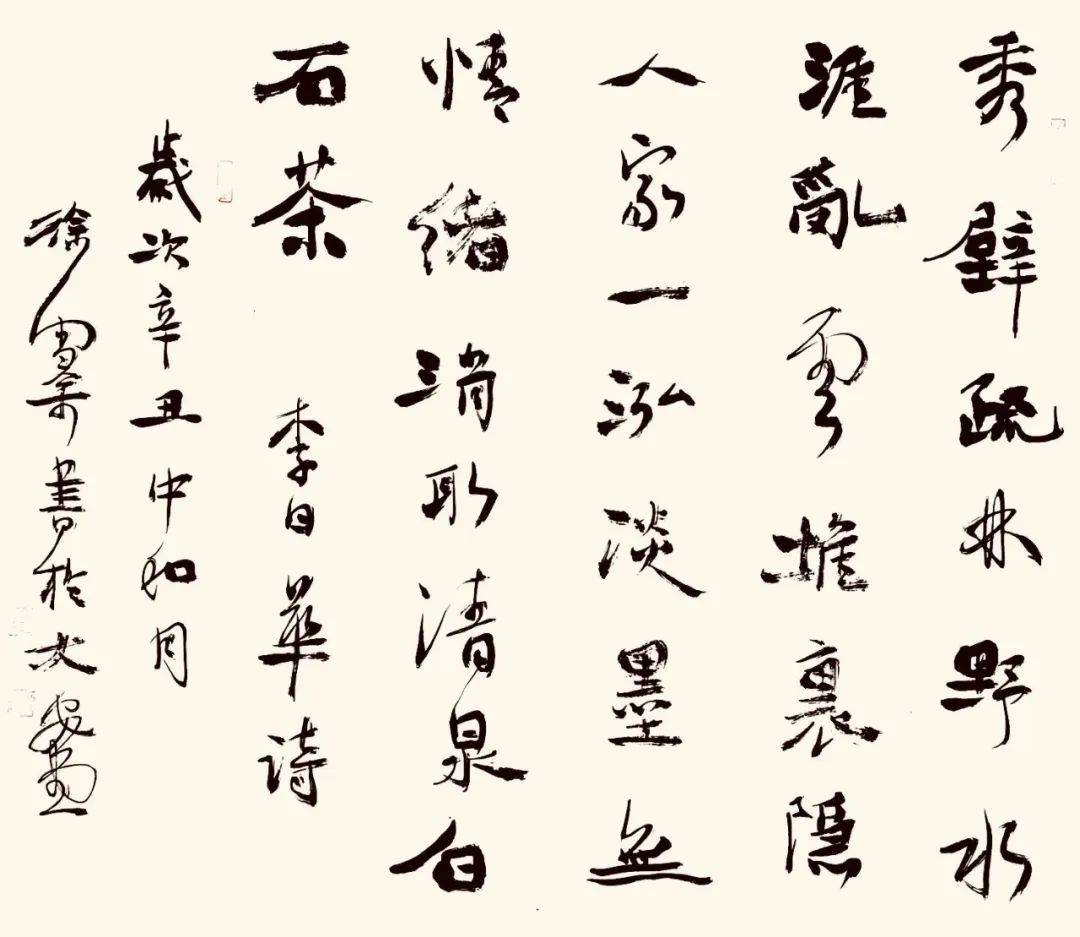 秀壁疏林野水
涯亂雲堆裏隱
人家一泓淡墨無
情緒消取清泉白
石茶 李日華詩
歲次辛丑中和月
徐書於大